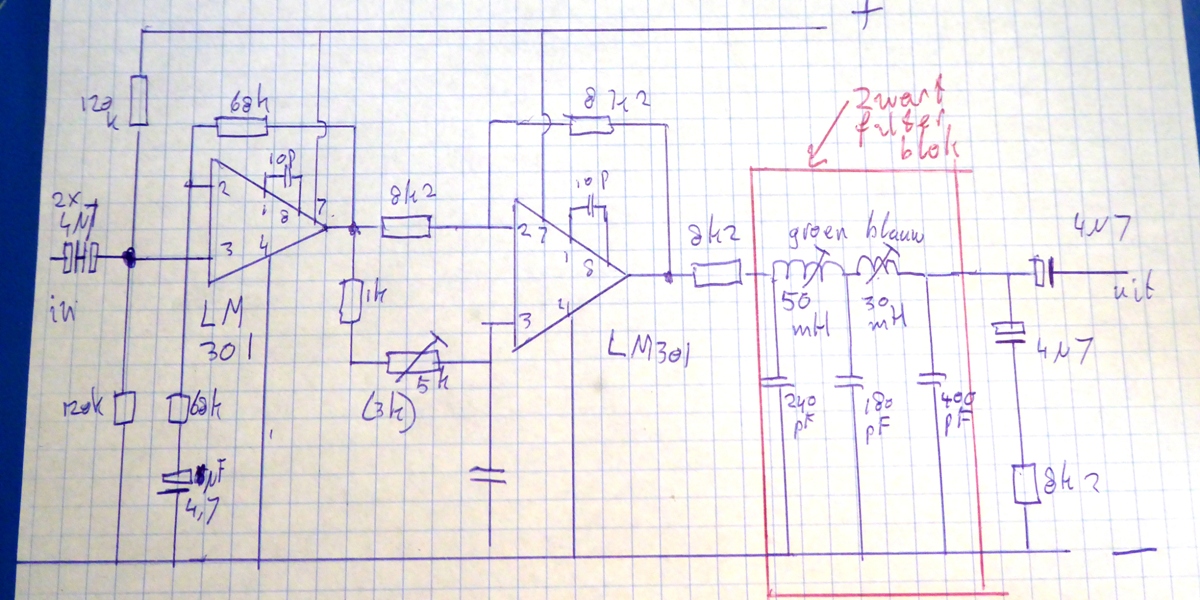 +
120
k
68k
10p
2
1
8
7
3
4
LM
301
2x
4N7
in
120k
68k
µF
4,7
8k2
1k
5k
(3k)
8k2
10p
2
7
1
8
3
4
LM301
8k2
Zwart
filter
blok
groen blauw
50
mH
30
mH
240
pF
180
pF
400
pF
4N7
uit
4N7
8k2
—